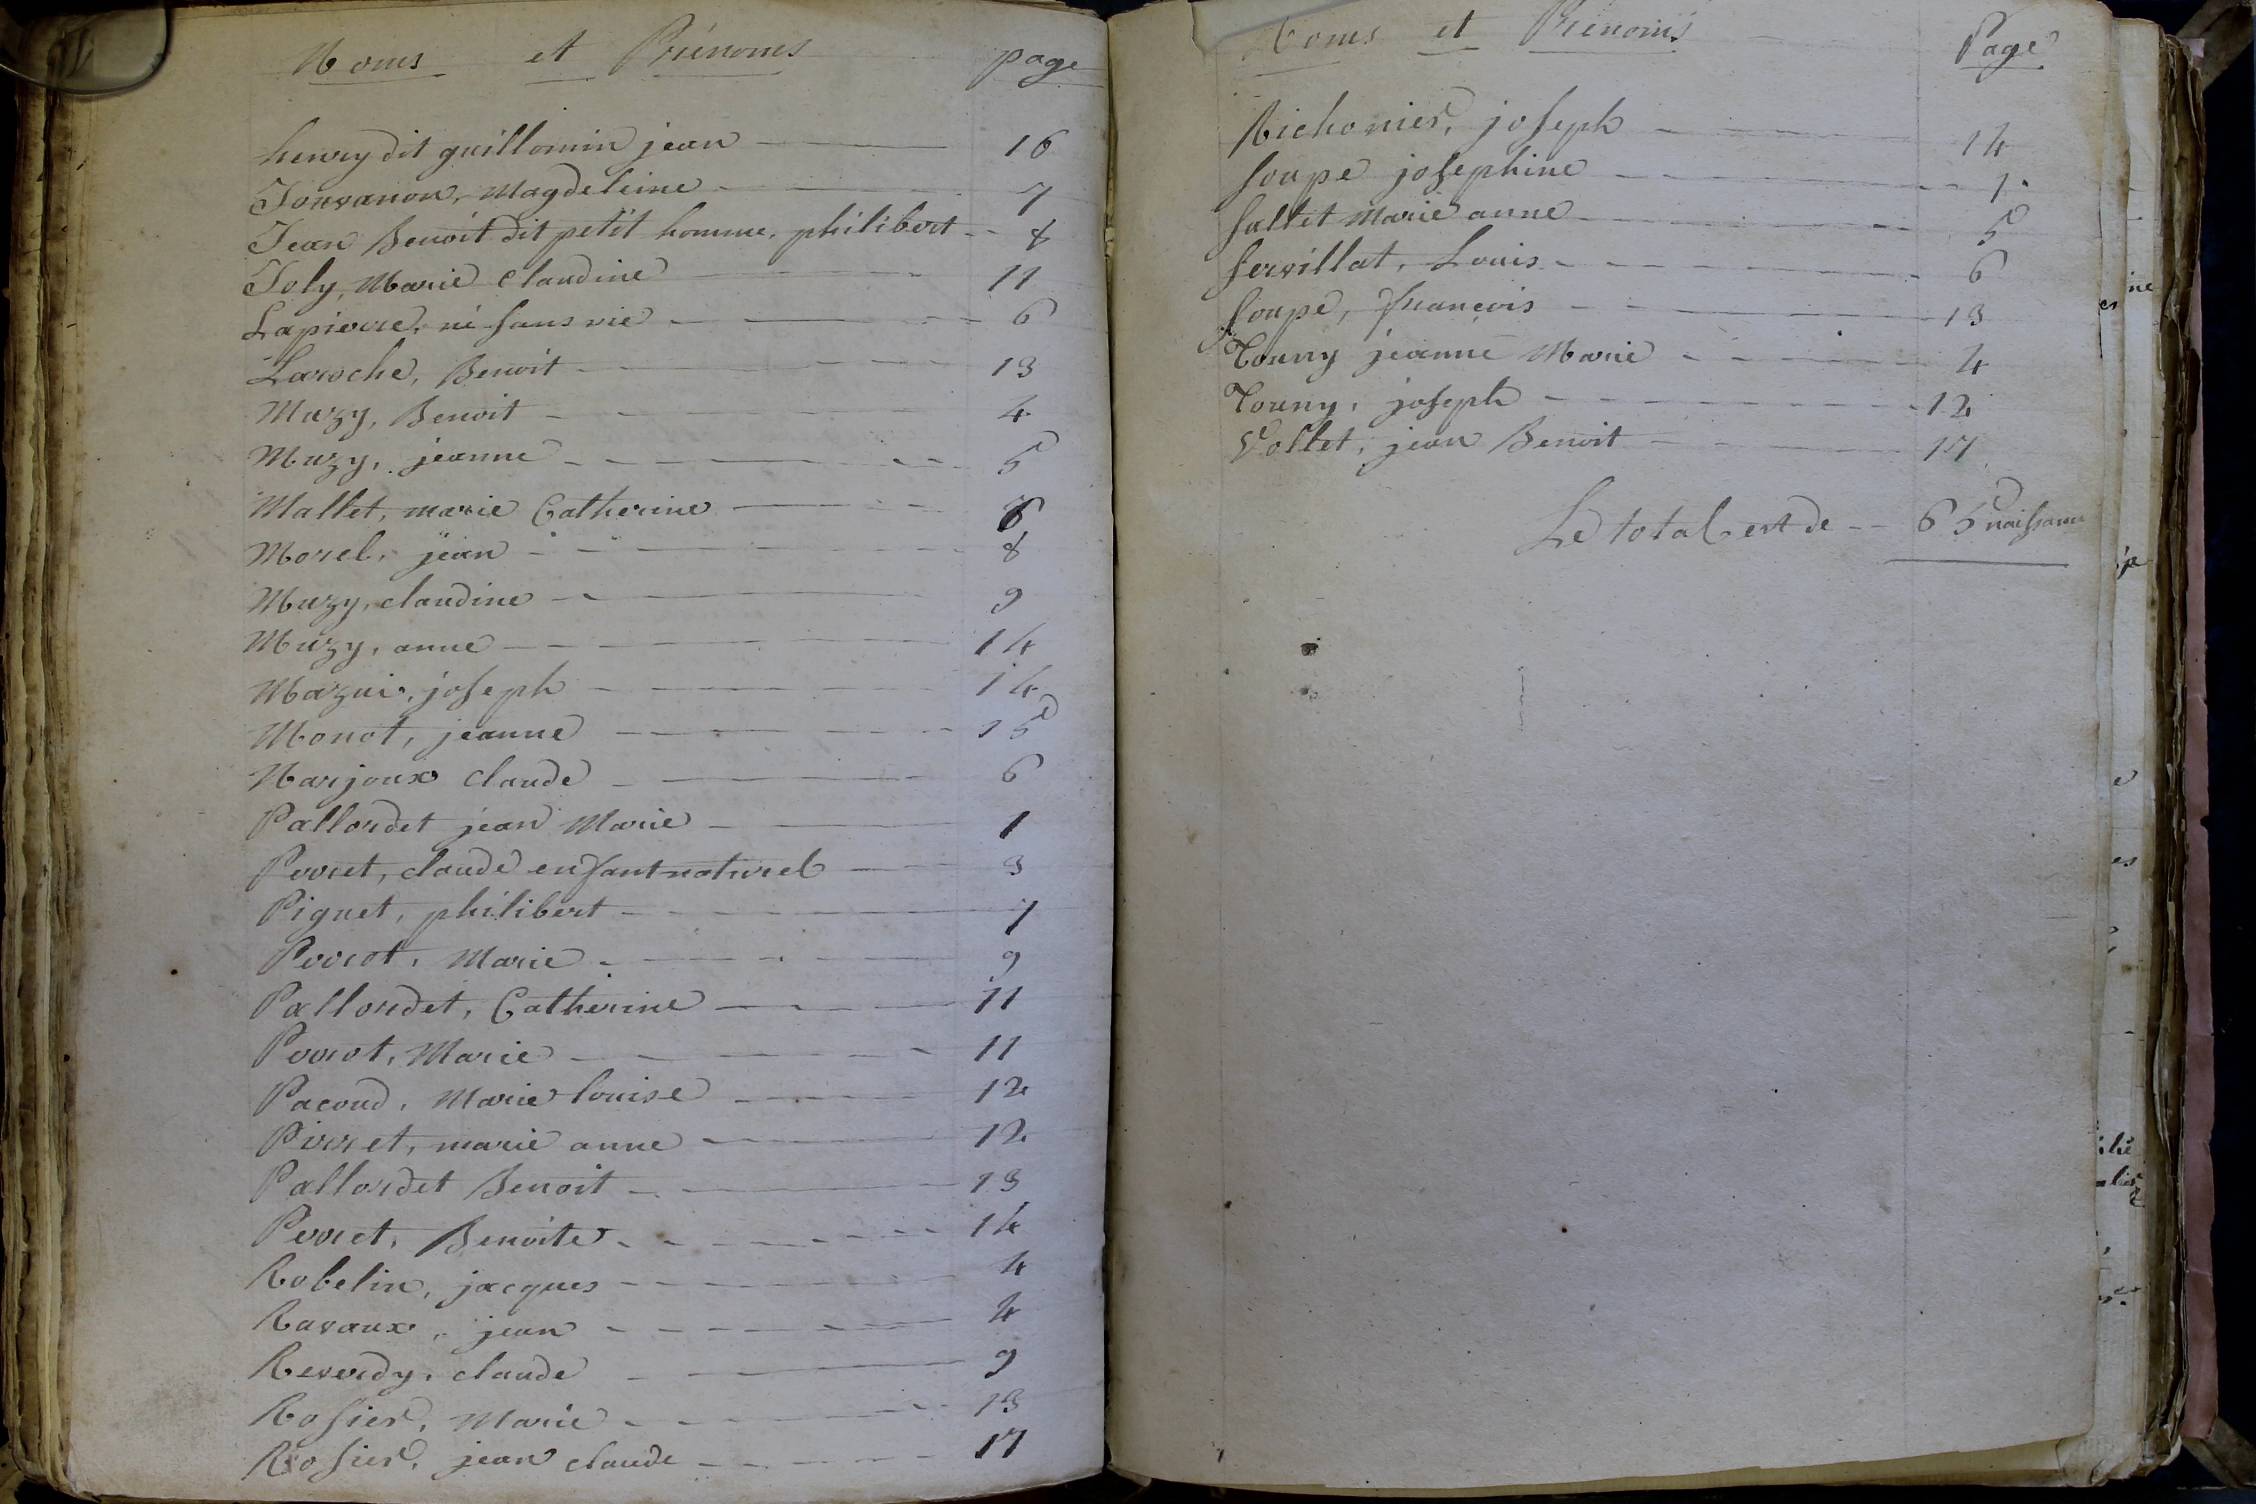 Noms et Prénoms page
henry dit guillomin jean 16
Jouvanon, Magdeleine 7
Jean Benoit dit petit homme, philibert 8
Joly, Marie Claudine 11
Lapierre, né sans vie 6
Laroche, Benoit 13
Muzy, Benoit 4
Muzy, jeanne 5
Mallet, marie Catherine 6
Morel, jean 8
Muzy, claudine 9
Muzy, anne 14
Mazui, joseph 14
Monot, jeanne 15
Narjoux claude 6
Pallordet jean Marie 1
Perret, claude enfant naturel 3
Piguet, philibert 7
Perrot, Marie 9
Pallordet, Catherine 11
Perrot, Marie 11
Pacoud, Marie louise 12
Pirret, marie anne 12
Pallordet Benoit 13
Perret, Benoite 14
Robelin, jacques 4
Ravaux, jean 4
Reverdy, claude 9
Rosier, Marie 13
Rosier, jean claude 17
Noms et Prénoms Page
Richonier, joseph 14
Soupe josephine 1
Sallet Marie anne 5
Servillat, Louis 6
Soupe, francois 13
Touny jeanne Marie 4
Touny, joseph 12
Vollet, jean Benoit 17
Le total est de 65 naissances